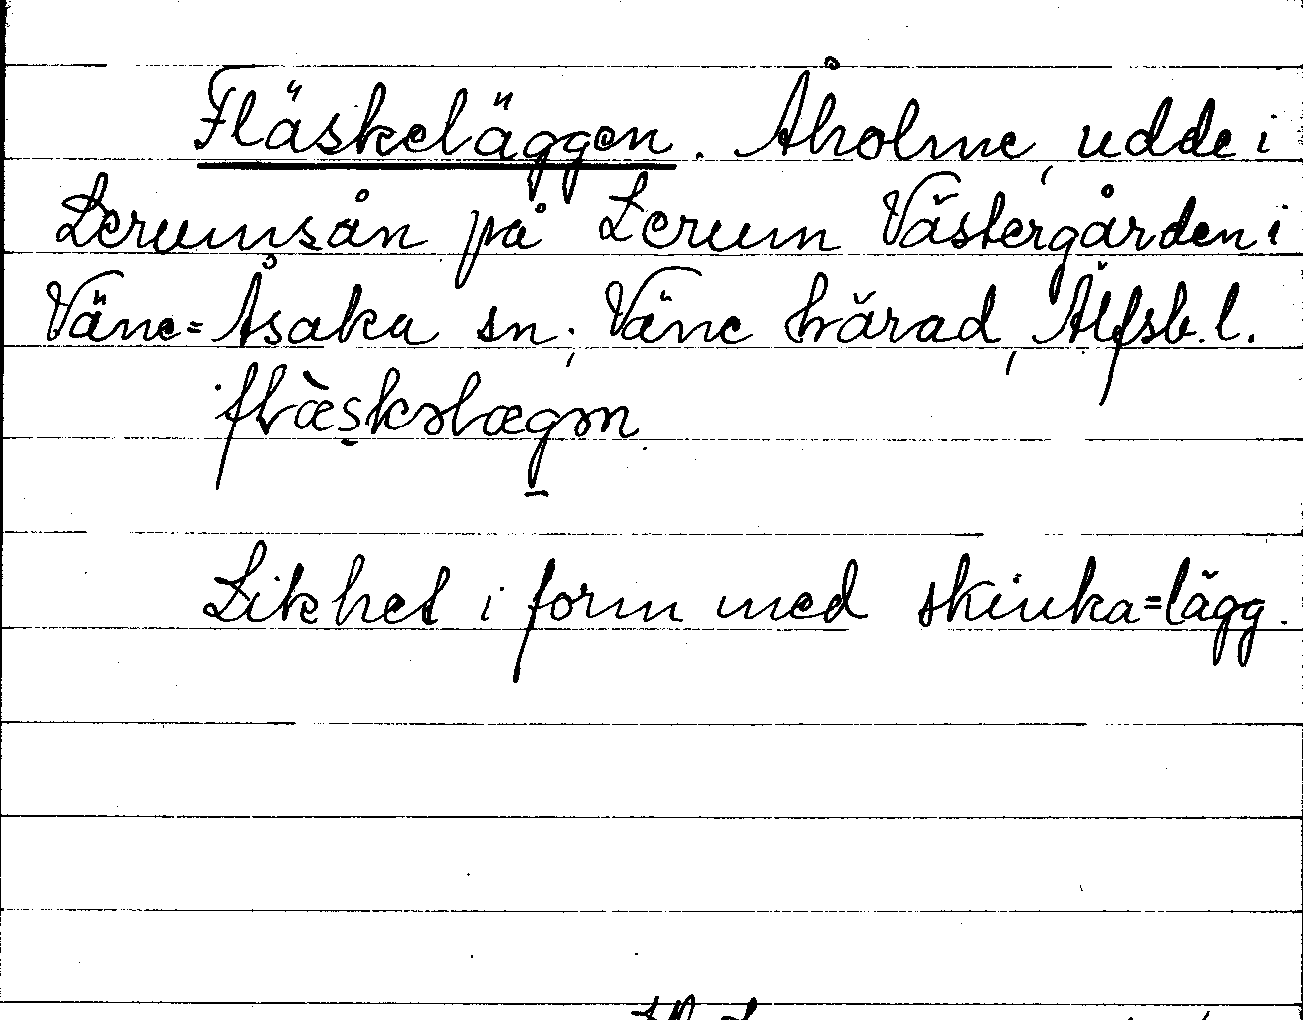 Fläskeläggen. Åholme, udde i
Lerumsån på Lerum Västergården i
Väne=Åsaka sn; Väne härad, Älfsb. l.
flæ̀skəlægən
Likhet i form med skinka=lägg.